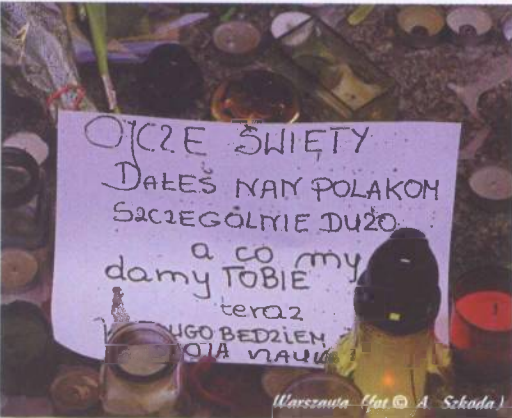 OJCZE ŚWIĘTY
DAŁEŚ NAM POLAKOM
SZCZEGÓLNIE DUŻO
a co my
damy TOBIE
teraz
UGO BEDZIEM
OJA NAUK
Warszawa (fot © A. Szkoda)